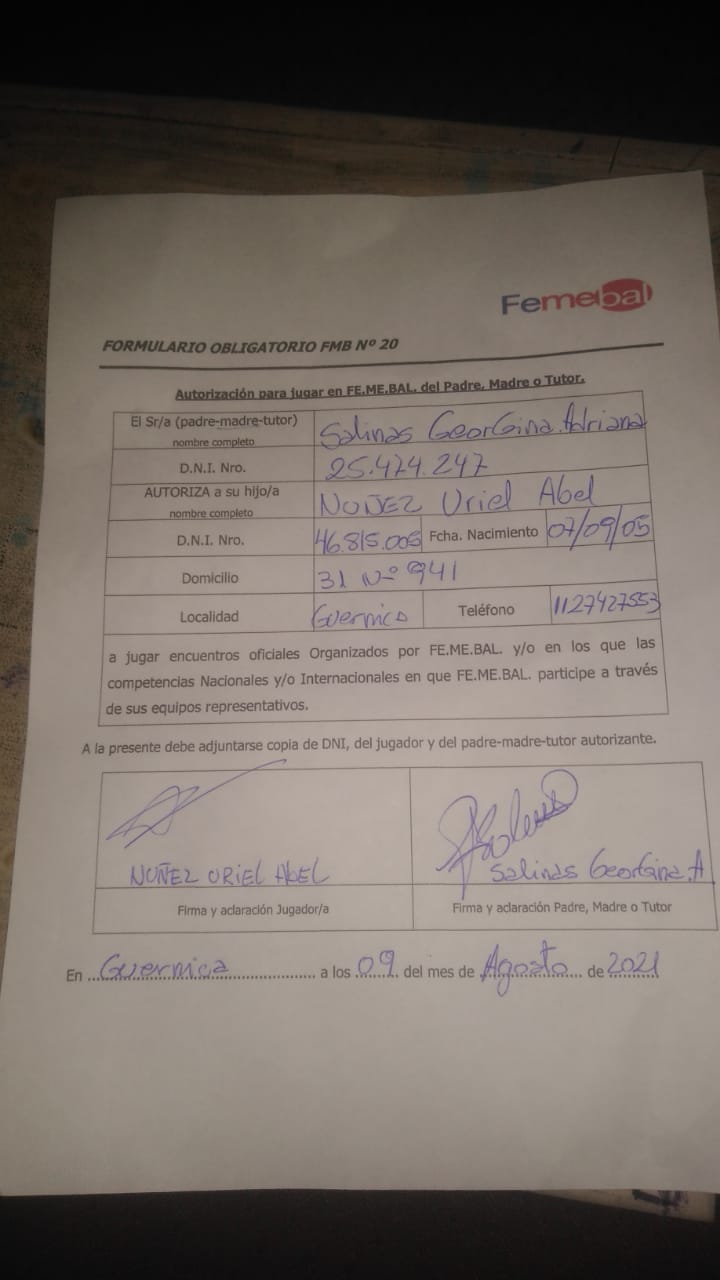 Femebal
FORMULARIO OBLIGATORIO FMB Nº 20
Autorización para jugar en FE.ME.BAL. del Padre, Madre o Tutor.
El Sr/a (padre-madre-tutor)
nombre completo
Salinas GeorGina Adriana
D.N.I. Nro.
25.474.247
AUTORIZA a su hijo/a
nombre completo
NUÑEZ Uriel Abel
D.N.I. Nro.
46.815.005
Fcha. Nacimiento
07/09/05
Domicilio
31 Nº 941
Localidad
Guernica
Teléfono
1127427553
a jugar encuentros oficiales Organizados por FE.ME.BAL. y/o en los que las
competencias Nacionales y/o Internacionales en que FE.ME.BAL. participe a través
de sus equipos representativos.
A la presente debe adjuntarse copia de DNI, del jugador y del padre-madre-tutor autorizante.
NUÑEZ URIEL ABEL
Salinas GeorGina.A
Firma y aclaración Jugador/a
Firma y aclaración Padre, Madre o Tutor
En Guernica a los 09 del mes de Agosto de 2021